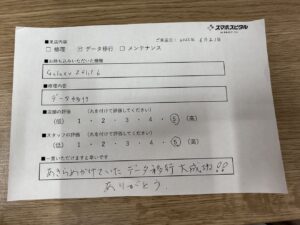 スマホスピタル
■ご来店内容
ご来店日: 2025年 6月21日
□ 修理 ☑ データ移行 □ メンテナンス
■お持ち込みいただいた機種
Galaxy
■修理内容
データ移行
■店舗の評価 (丸を付けて評価してください)
(低) 1 ・ 2 ・ 3 ・ 4 ・ 5 (高)
■スタッフの評価 (丸を付けて評価してください)
(低) 1 ・ 2 ・ 3 ・ 4 ・ 5 (高)
■一言いただけますと幸いです
あきらめかけていたデータ移行 大成功!!
ありがとう